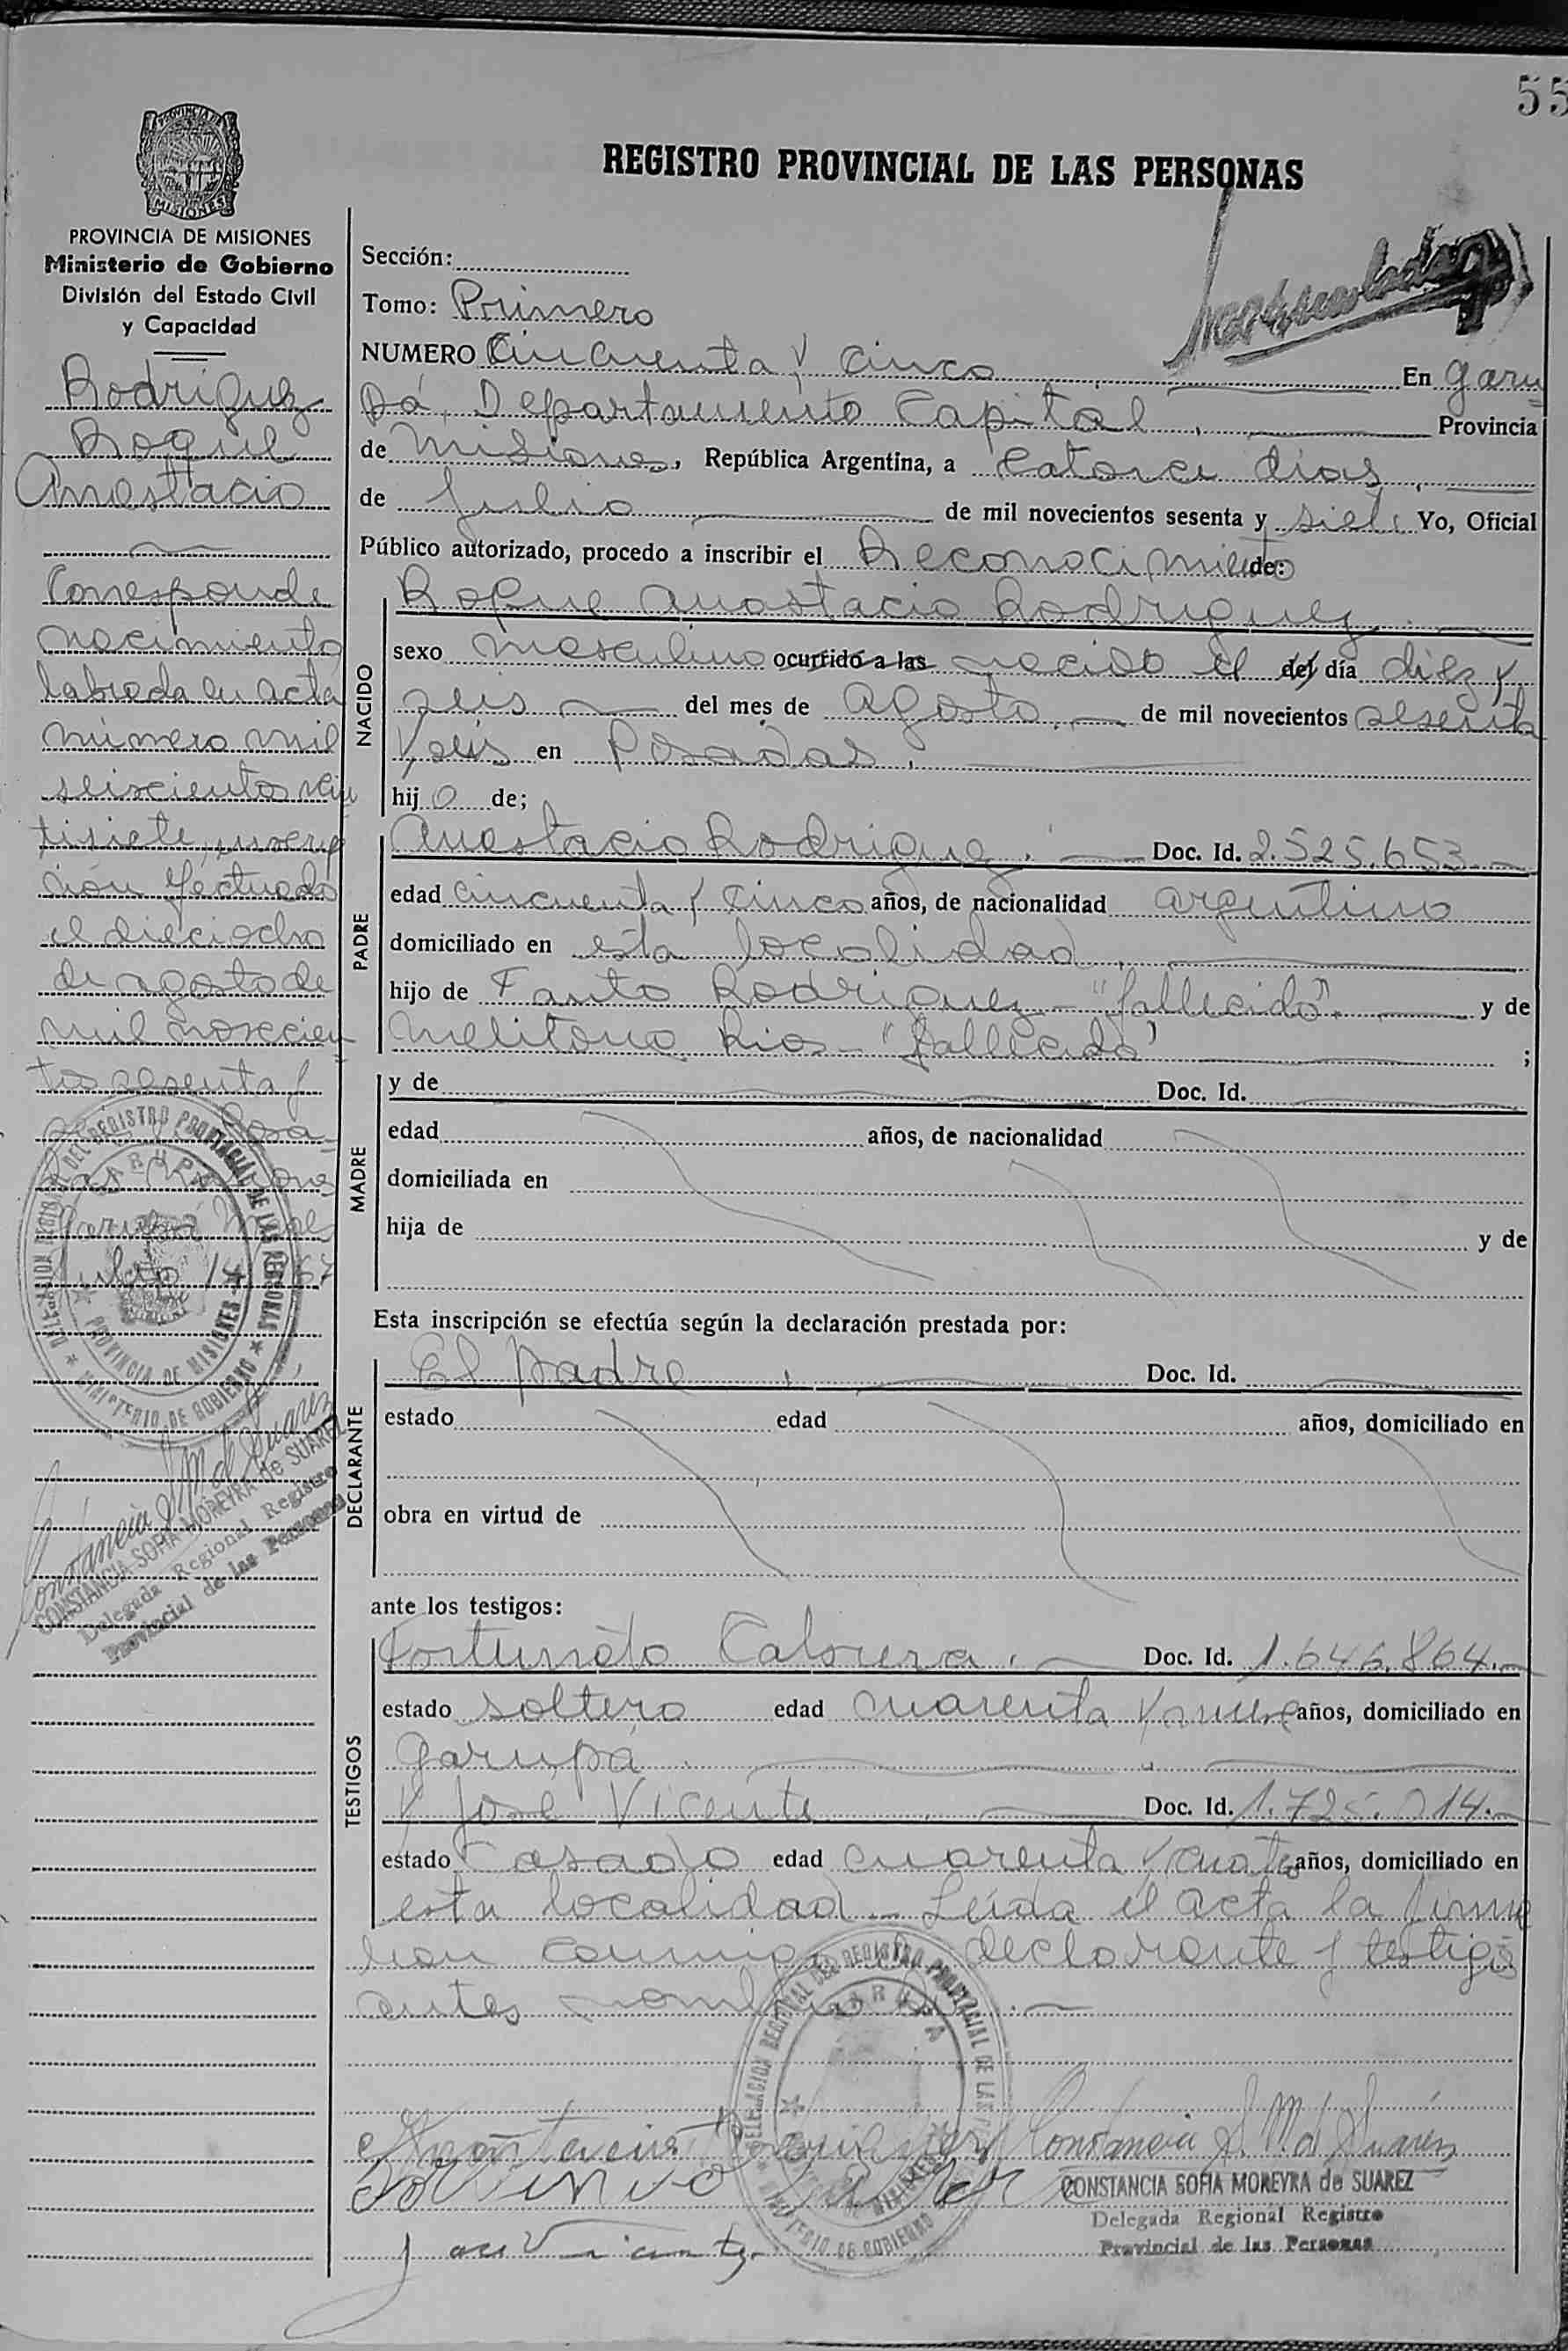 55
REGISTRO PROVINCIAL DE LAS PERSONAS
PROVINCIA DE MISIONES
PROVINCIA DE MISIONES
Ministerio de Gobierno
División del Estado Civil
y Capacidad
Rodriguez
Roque
Anastacio
Corresponde
nacimiento
labrada en acta
número mil
seiscientos vein
tisiete, inscrip
ción efectuada
el dieciocho
de agosto de
mil novecien
tos sesenta y
Garupá
Julio 14 67
DELEGACION REGIONAL DEL REGISTRO PROVINCIAL DE LAS PERSONAS
GARUPA
PROVINCIA DE MISIONES
MINISTERIO DE GOBIERNO
Constancia S. M. d Suarez
CONSTANCIA SOFIA MOREYRA de SUAREZ
Delegada Regional Registro
Provincial de las Personas
Sección:
Tomo: Primero
NUMERO Cincuenta y Cinco En Garu
pá, Departamento Capital, Provincia
de Misiones, República Argentina, a Catorce días
de Julio de mil novecientos sesenta y siete Yo, Oficial
Público autorizado, procedo a inscribir el Reconocimiento de:
NACIDO
Roque Anastacio Rodriguez
sexo masculino ocurrido a las nacido el del día diez y
seis del mes de agosto de mil novecientos sesenta
y seis en Posadas.
hijo de;
PADRE
Anastacio Rodriguez. Doc. Id. 2.525.653.-
edad cincuenta y cinco años, de nacionalidad argentino
domiciliado en esta localidad
hijo de Fausto Rodriguez - "fallecido". y de
Melitona Rios - "fallecida" ;
MADRE
y de Doc. Id.
edad años, de nacionalidad
domiciliada en
hija de y de
Esta inscripción se efectúa según la declaración prestada por:
DECLARANTE
El padre, Doc. Id.
estado edad años, domiciliado en
obra en virtud de
ante los testigos:
TESTIGOS
Fortunato Cabrera. Doc. Id. 1.646.864.-
estado soltero edad cuarenta y nueve años, domiciliado en
Garupá.
y José Vicente Doc. Id. 1.725.014.-
estado Casado edad cuarenta y cuatro años, domiciliado en
esta localidad.- Leída el acta la firma
ran conmigo el declarante y testigos
antes nombrados.-
DELEGACION REGIONAL DEL REGISTRO PROVINCIAL DE LAS
GARUPA
MINISTERIO DE GOBIERNO
Constancia S. M. d Suarez
CONSTANCIA SOFIA MOREYRA de SUAREZ
Delegada Regional Registro
Provincial de las Personas